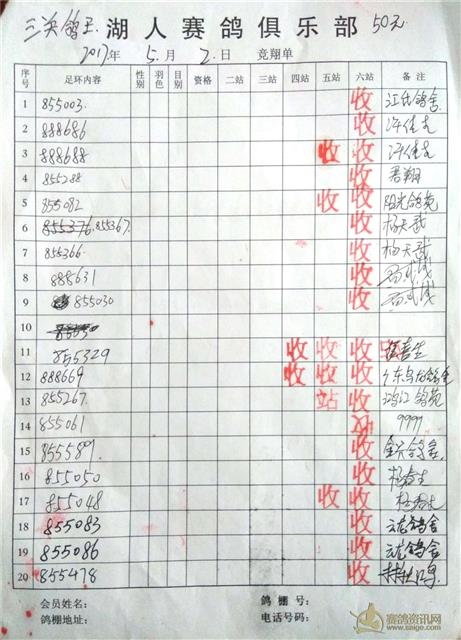 三关鸽王 湖人赛鸽俱乐部 50元
2017年 5.月 2.日 竞翔单
序号 足环内容 性别 羽色 目别 资格 二站 三站 四站 五站 六站 备注
1 855003. 收 江氏鸽舍
2 888686 收
3 888688 收 收
4 855288 收 君翔
5 855082 收 收 阳光鸽苑
6 855376.855367. 收 杨天武
7 855366. 收 杨天武
8 888631 收
9 855030 收
10
11 855329 收 收 收
12 888669 收 收 收
13 855267 站 收 鸿江鸽苑
14 855061 收 9999
15 855589 收 鸽舍
16 855050 收
17 855048 收 收
18 855083 收 云龙鸽舍
19 855086 收 云龙鸽舍
20 855478 收
会员姓名: 鸽棚号:
鸽棚地址: 电话号码:
赛鸽资讯网
www.saige.com